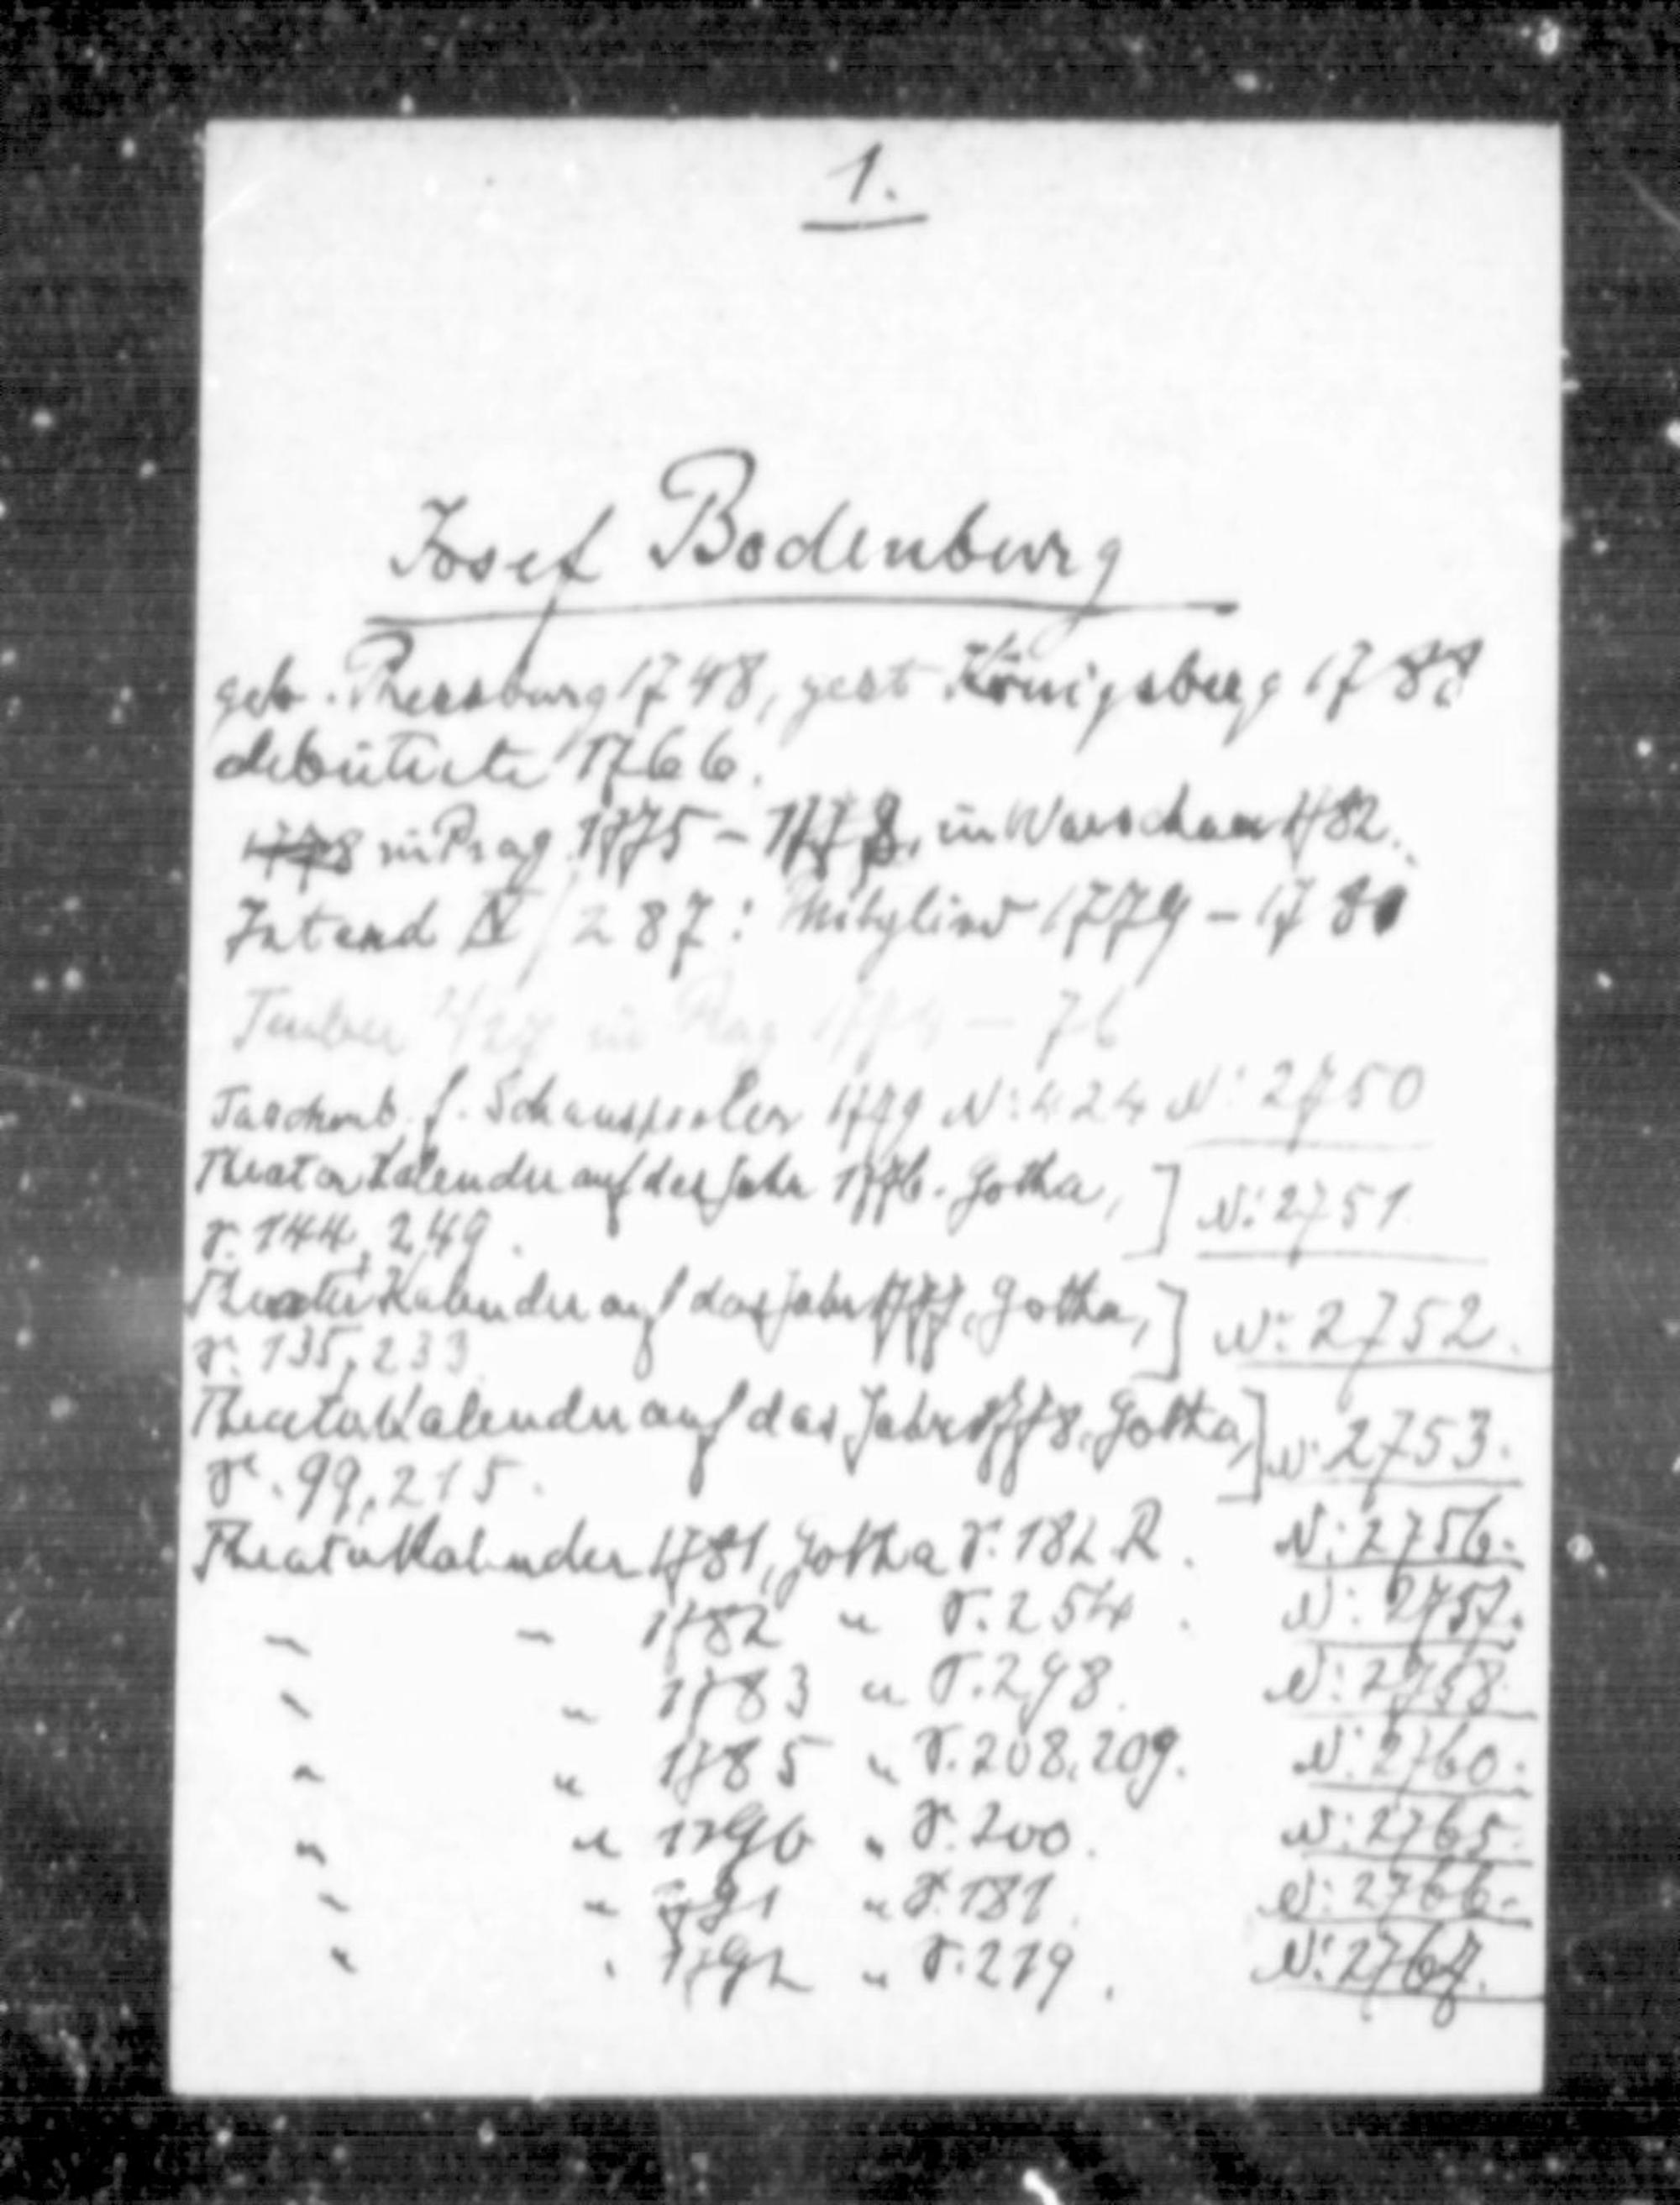 1.
Josef Bodenburg
geb. Pressburg 1748, gest Königsberg 178
debütierte 1766.
1778 in Prag 1775 – 1778, in Warschau 1782.
Intend IV / 287: Mitglied 1779 – 178
in Prag – 76
Taschenb. f. Schauspieler 1779 N: 424 N: 2750
Theater Kalender auf das Jahr 1776. Gotha, ] N: 2751
S. 144, 249.
Theater Kalender auf das Jahr 1777, Gotha, ] N: 2752.
S. 135, 233
Theater Kalender auf das Jahr 1778, Gotha, ] N: 2753.
S. 99, 215.
Theater Kalender 1781, Gotha S. 182 R. N: 2756.
" " 1782 " S. 254. N: 2757.
" " 1783 " S. 298. N: 2758
" " 1785 " S. 208, 209. N: 2760.
" " 1790 " S. 200. N: 2765.
" " 1791 " S. 181. N: 2766.
" " 1792 " S. 219. N: 2767.